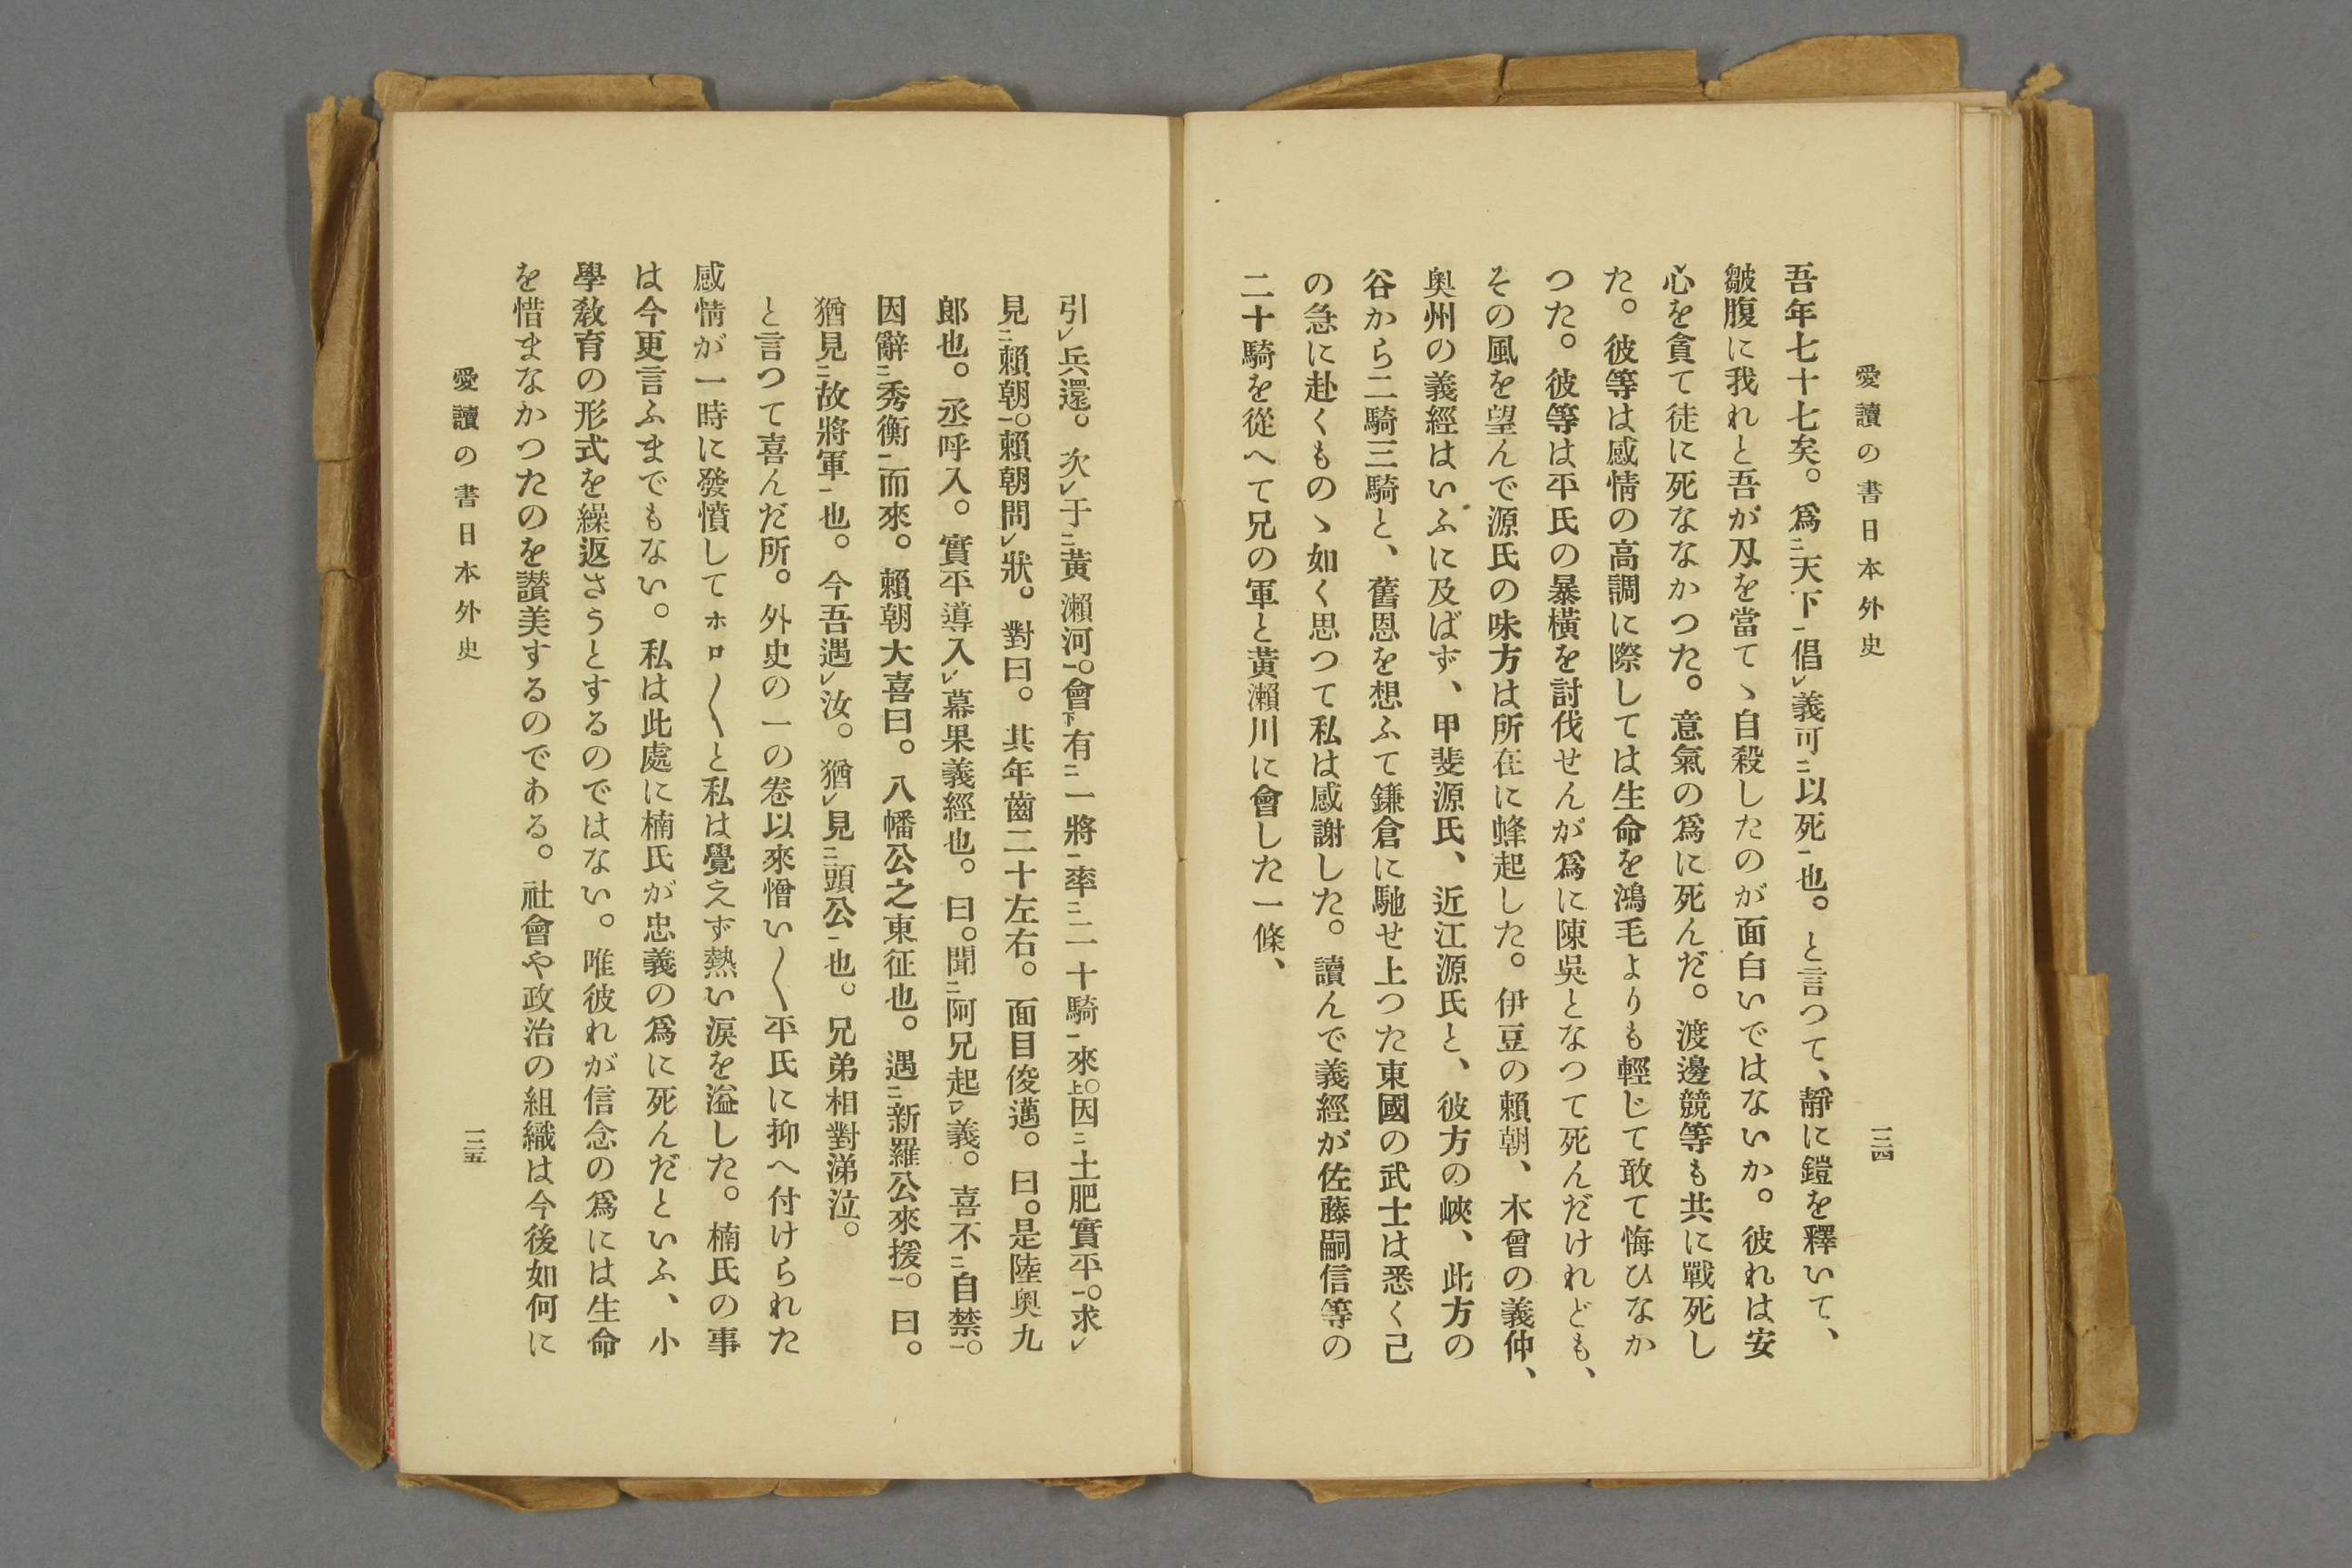 愛讀の書日本外史
一三四
吾年七十七矣。爲㆓天下㆒倡㆑義可㆓以死㆒也。と言つて、靜に鎧を釋いて、
皺腹に我れと吾が刄を當てゝ自殺したのが面白いではないか。彼れは安
心を貪て徒に死なゝかつた。意氣の爲に死んだ。渡邊競等も共に戰死し
た。彼等は感情の高調に際しては生命を鴻毛よりも輕じて敢て悔ひなか
つた。彼等は平氏の暴橫を討伐せんが爲に陳吳となつて死んだけれども、
その風を望んで源氏の味方は所在に蜂起した。伊豆の賴朝、木曾の義仲、
奥州の義經はいふに及ばず、甲斐源氏、近江源氏と、彼方の峽、此方の
谷から二騎三騎と、舊恩を想ふて鎌倉に馳せ上つた東國の武士は悉く己
の急に赴くものゝ如く思つて私は感謝した。讀んで義經が佐藤嗣信等の
二十騎を從へて兄の軍と黃瀨川に會した一條、
引㆑兵還。次㆑于㆓黃瀨河㆒。會㆘有㆓一將㆒率㆓二十騎㆒來㆖。因㆓土肥實平㆒。求㆑
見㆓賴朝㆒。賴朝問㆑狀。對曰。其年齒二十左右。面目俊邁。曰。是陸奥九
郎也。丞呼入。實平導入㆑幕果義經也。曰。聞㆓阿兄起㆑義。喜不㆓自禁㆒。
因辭㆓秀衡㆒而來。賴朝大喜曰。八幡公之東征也。遇㆓新羅公來援㆒。曰。
猶見㆓故將軍㆒也。今吾遇㆑汝。猶㆑見㆓頭公㆒也。兄弟相對涕泣。
と言つて喜んだ所。外史の一の卷以來憎い〱平氏に抑へ付けられた
感情が一時に發憤してホロ〱と私は覺えず熱い淚を溢した。楠氏の事
は今更言ふまでもない。私は此處に楠氏が忠義の爲に死んだといふ、小
學敎育の形式を繰返さうとするのではない。唯彼れが信念の爲には生命
を惜まなかつたのを讃美するのである。社會や政治の組織は今後如何に
愛讀の書日本外史
一三五